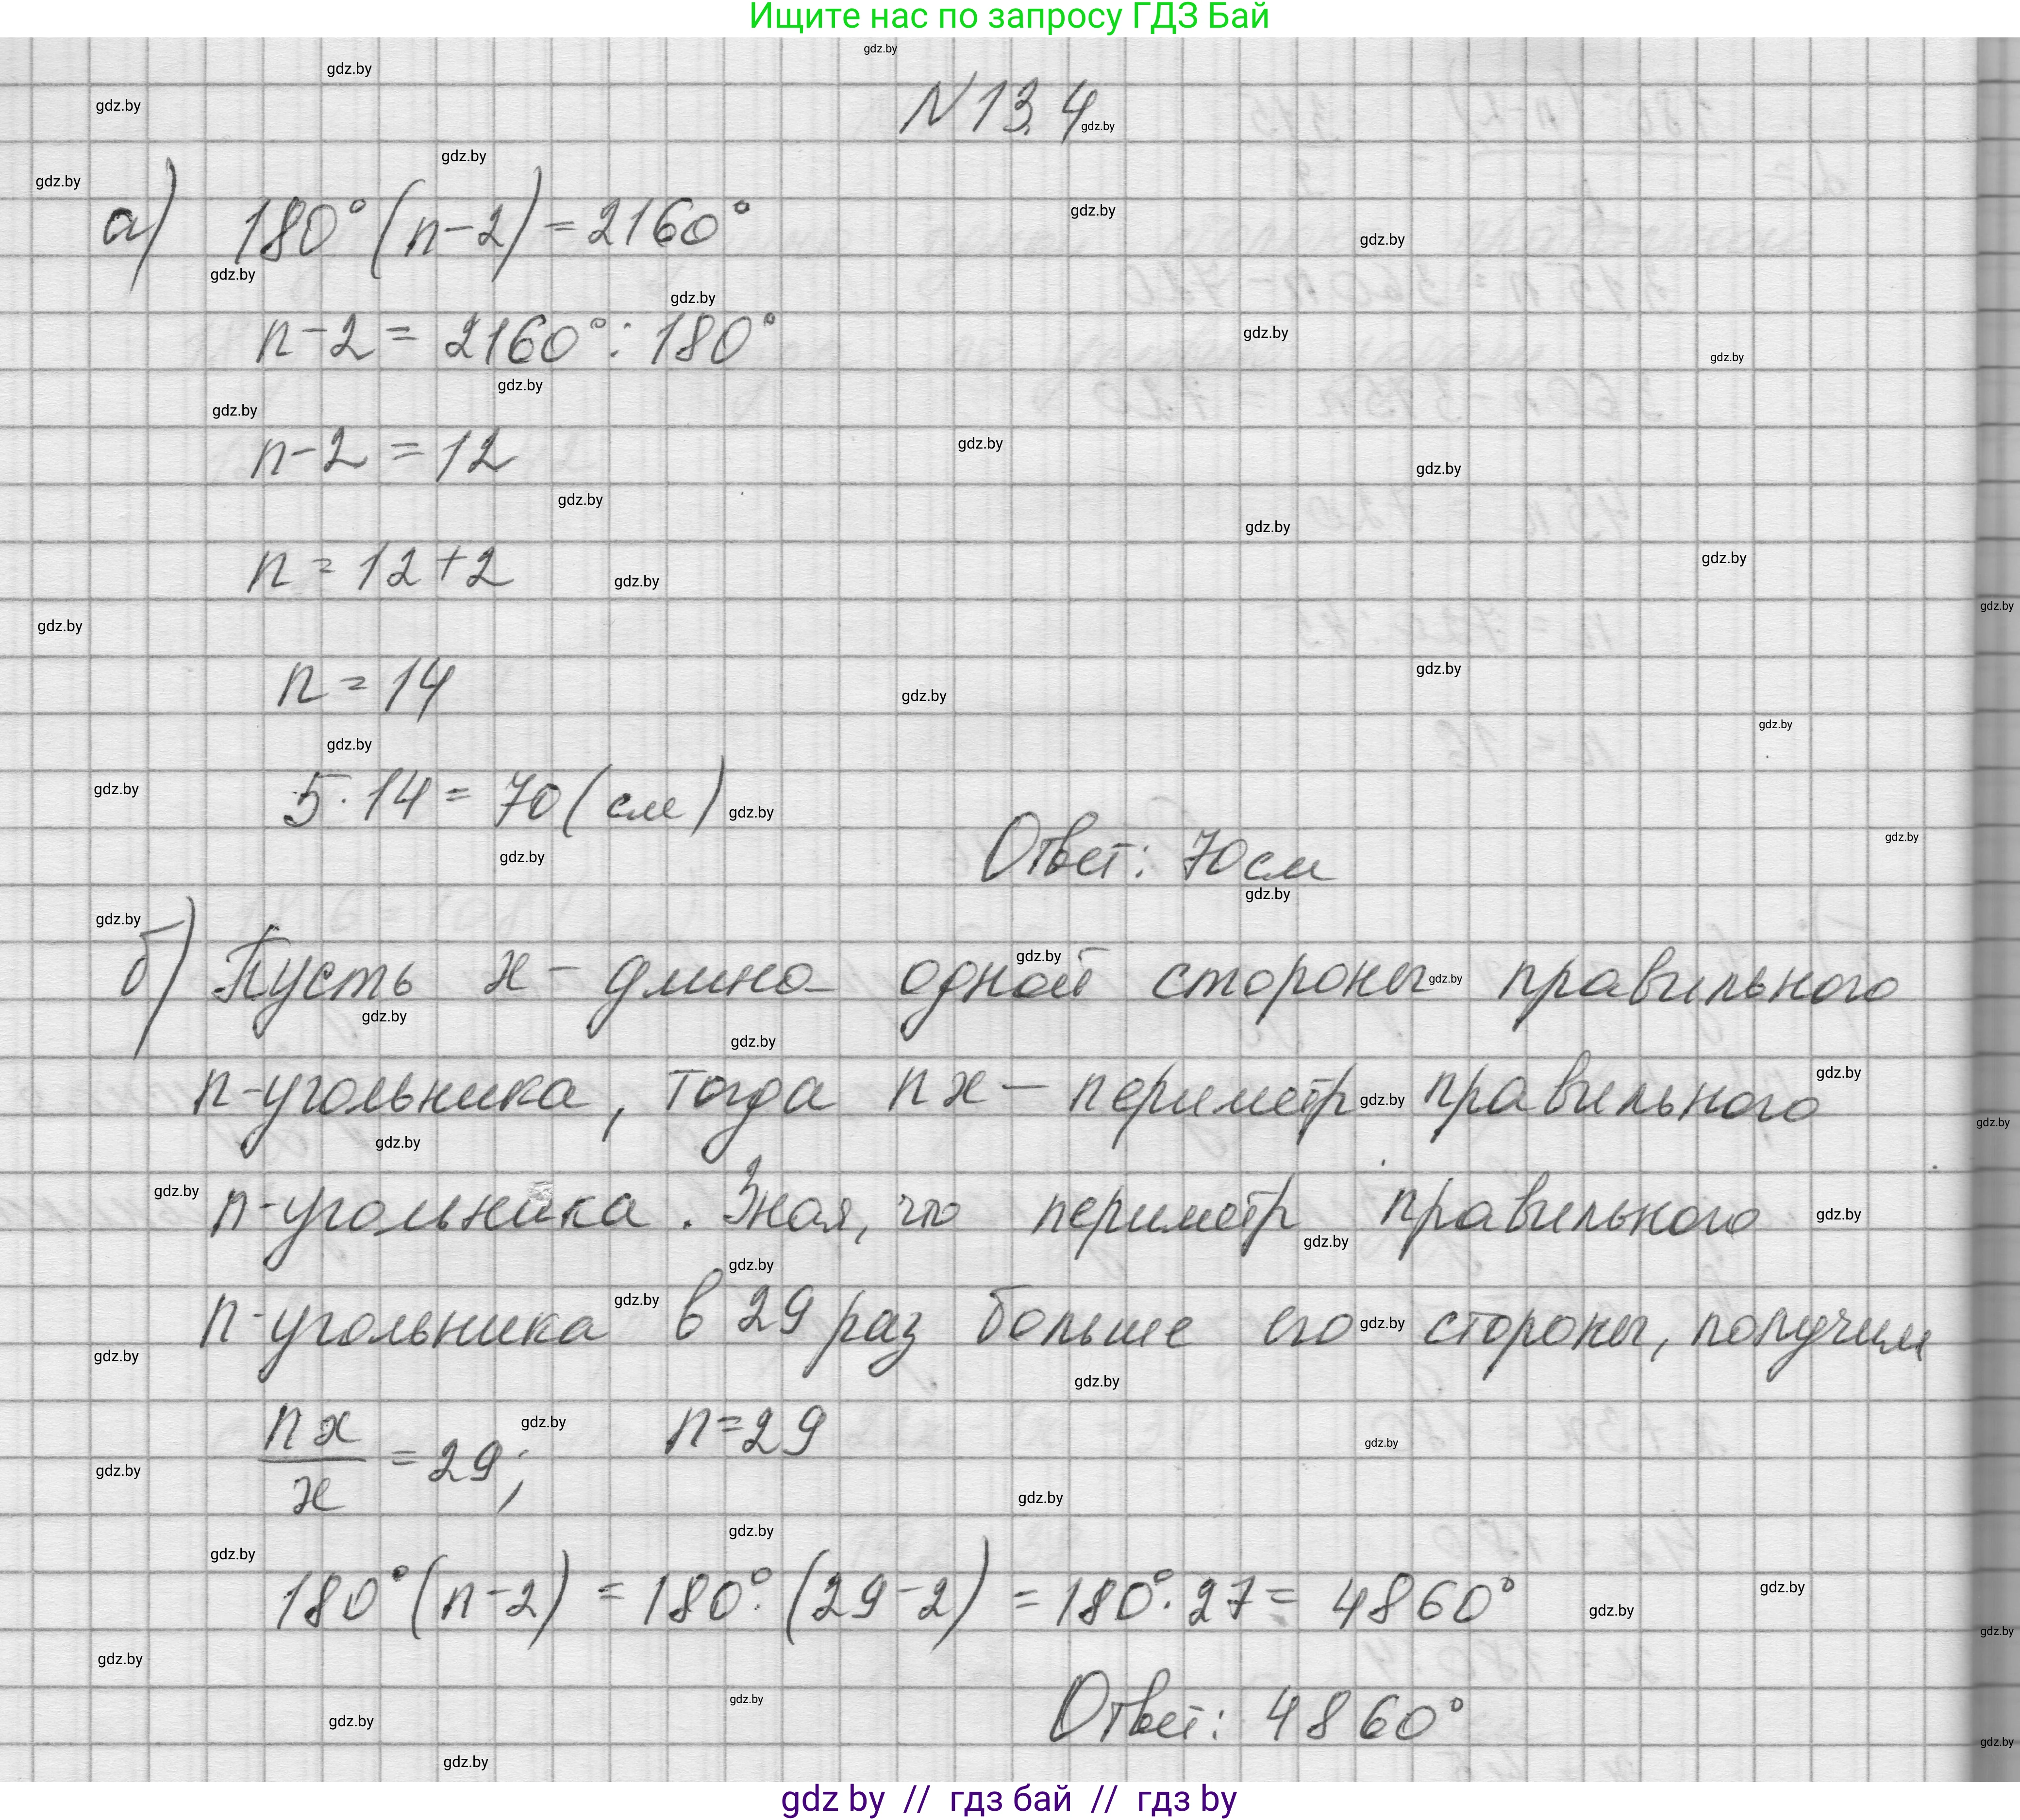 Ищите нас по запросу ГДЗ Бай
N 13.4
а) 180° (n-2) = 2160°
n-2 = 2160° : 180°
n-2 = 12
n = 12+2
n = 14
5·14 = 70 (см)
Ответ: 70 см
б) Пусть x - длина одной стороны правильного
n-угольника, тогда nx - периметр правильного
n-угольника. Зная, что периметр правильного
n-угольника в 29 раз больше его стороны, получим
nx/x = 29; n=29
180°(n-2) = 180°·(29-2) = 180°·27 = 4860°
Ответ: 4860°
gdz by // гдз бай // гдз by